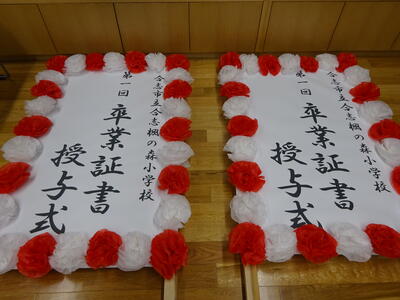 合志市立合志楓の森小学校
第一回
卒業証書
授与式
合志市立合志楓の森小学校
第一回
卒業証書
授与式